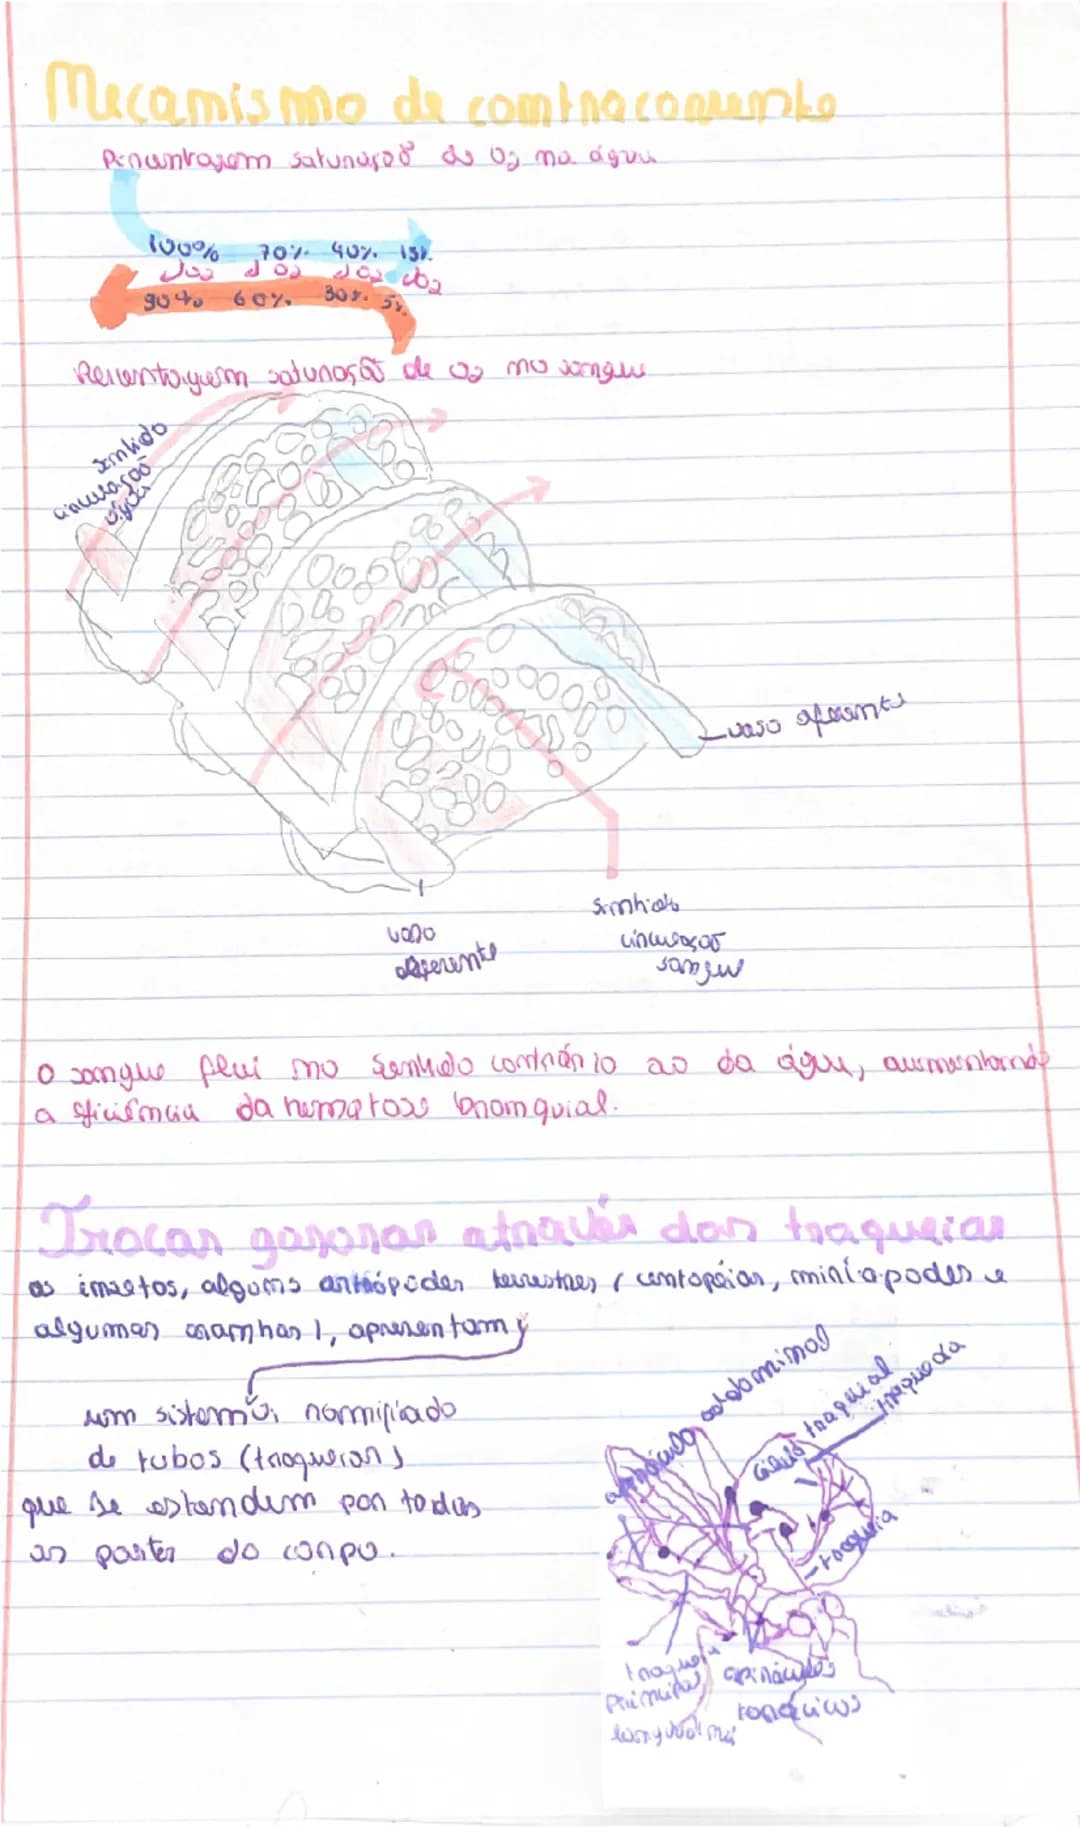 Mecanismo de contracorrente
Percentagem saturação de O2 na água
100% 70% 40% 15%
↓O2 ↓O2 ↓O2 ↓O2
90% 60% 30% 5%
Percentagem saturação de O2 no sangue
Sentido
circulação
água
vaso aferente
vaso
eferente
Sentido
circulação
sangue
O sangue flui no sentido contrário ao da água, aumentando
a eficiência da hematose branquial.
Trocas gasosas através das traqueias
os insetos, alguns artrópodes terrestres (centopéias, miniápodes e
algumas aranhas), apresentam
um sistema ramificado
de tubos (traqueias)
que se estendem por todas
as partes do corpo.
abdominal
traquial
traqueia
traqueia
principal
longitudinal
espiráculos
torácicos